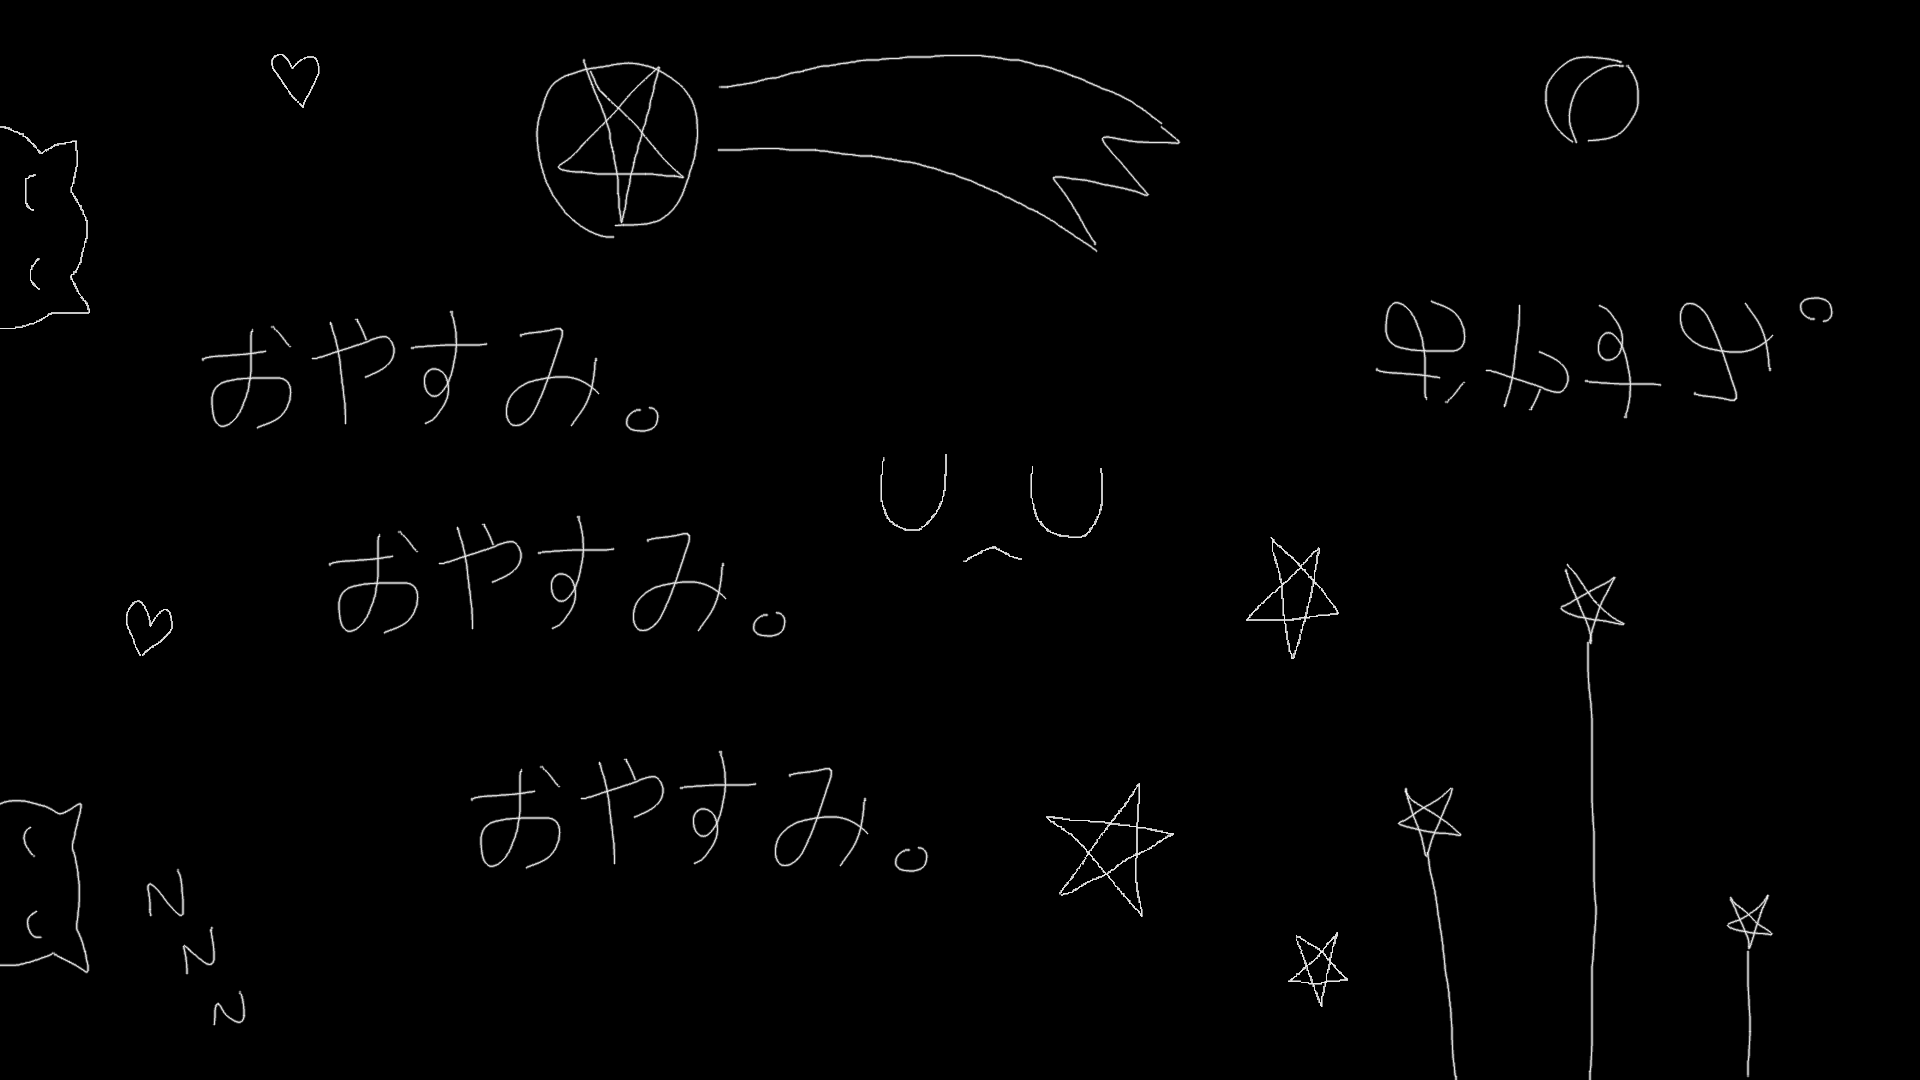 おやすみ。
おやすみ。
おやすみ。
おやすみ。
N
N
N